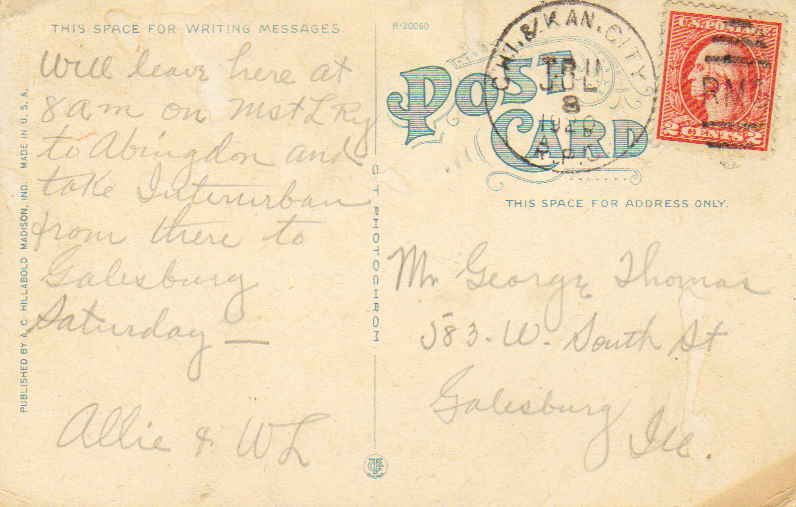 THIS SPACE FOR WRITING MESSAGES
R-20060
Will leave here at
8 am on MstL Ry
to Abingdon and
take Interurban
from there to
Galesburg
Saturday —
Allie & WL
PUBLISHED BY A. C. HILLABOLD MADISON, IND. MADE IN U. S. A.
C. T. PHOTOCHROM
POST
CARD
CHI. & KAN. CITY
JUL
8
1920
R.P.O.
U.S. POSTAGE
2 CENTS 2
RM
THIS SPACE FOR ADDRESS ONLY.
Mr George Thomas
583. W. South St
Galesburg
Ill.